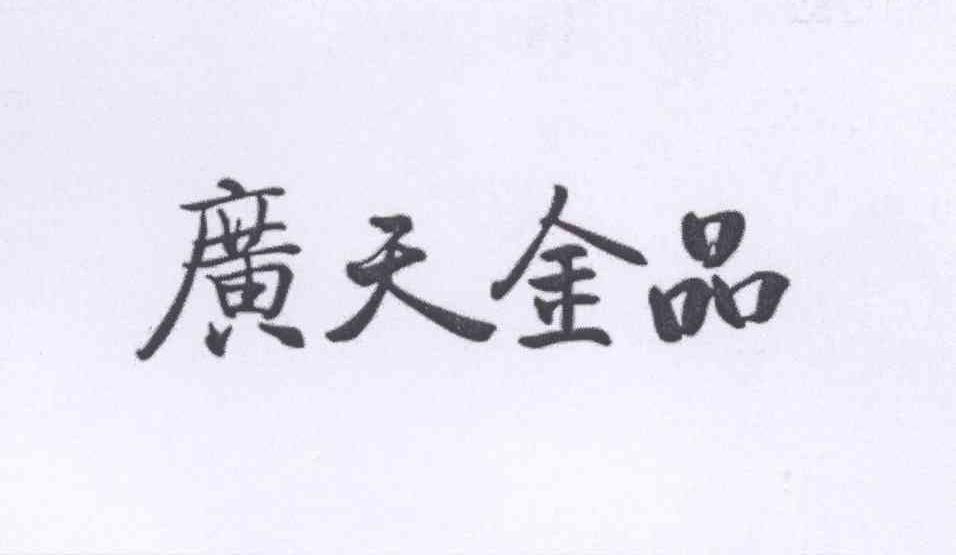 廣天金品